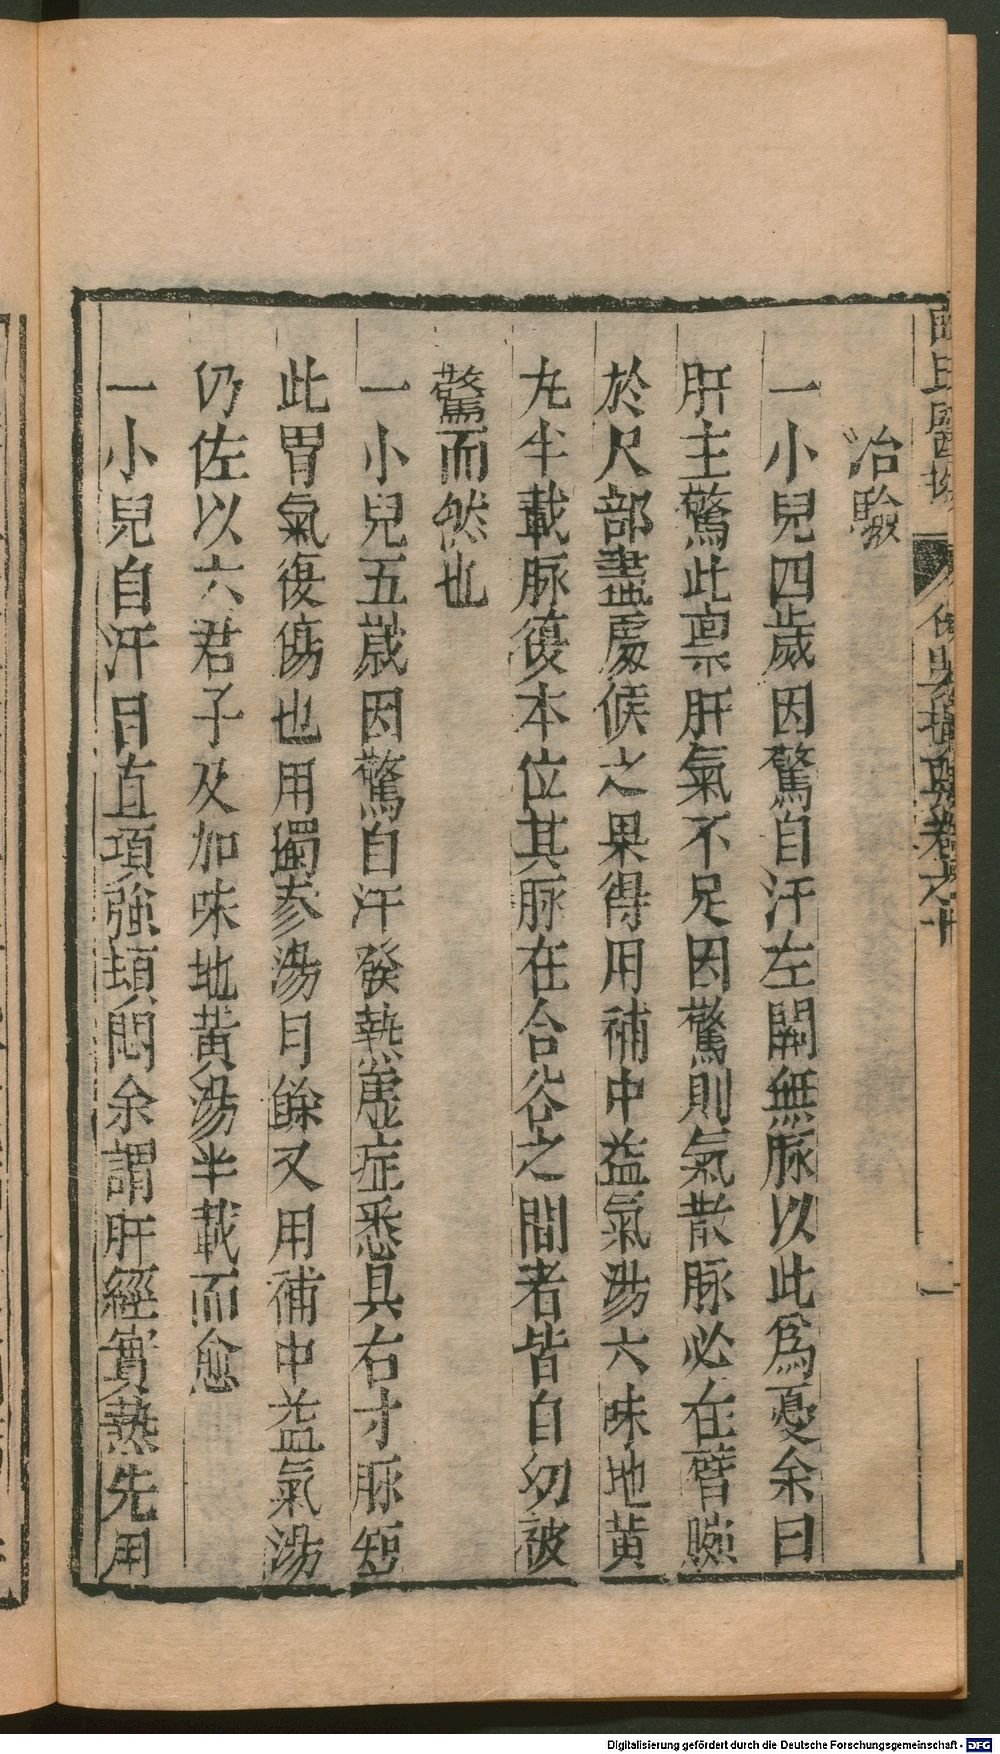 治驗
一小兒四歲因驚自汗左關無脉以此爲憂余曰
肝主驚此禀肝氣不足因驚則氣散脉必在臂腕
於尺部盡處候之果得用補中益氣湯六味地黄
丸半載脉復本位其脉在合谷之間者皆自幼被
驚而然也
一小兒五歲因驚自汗發熱虚症悉具右寸脉短
此胃氣復傷也用獨參湯月餘又用補中益氣湯
仍佐以六君子及加味地黄湯半載而愈
一小兒自汗目直項強頓悶余謂肝經實熱先用
卷之十
二
Digitalisierung gefördert durch die Deutsche Forschungsgemeinschaft - DFG